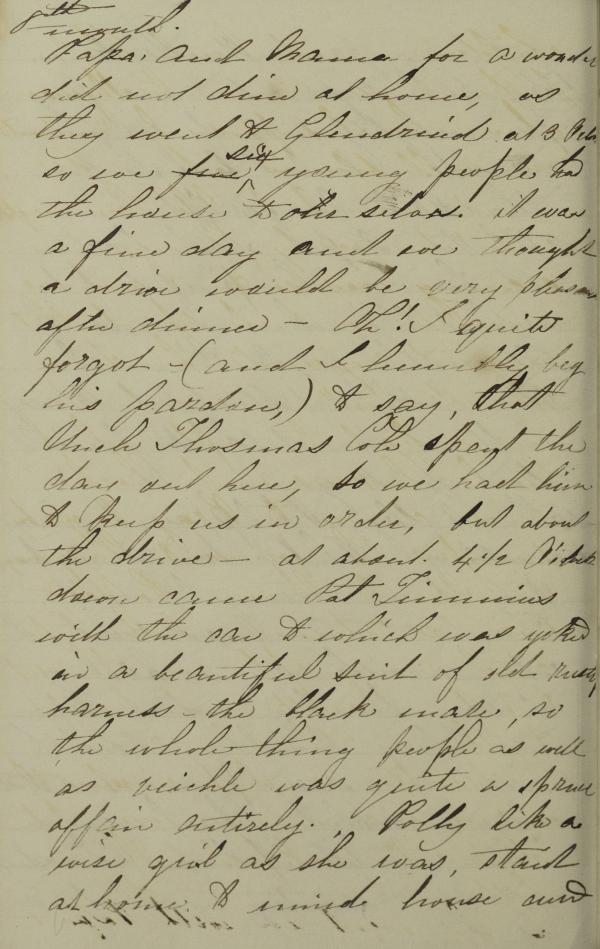 8th month.
Papa. and Mama for a wonder
did not dine at home, as
they went to Glendruid at 3 O'clo
so we five six young people had
the house to our selves. it was
a fine day and we thought
a drive would be very pleasan
after dinner – Oh! I quite
forgot – (and I humbly beg
his pardon,) to say, that
Uncle Thosmas Cole spent the
day out here, so we had him
to keep us in order, but about
the drive – at about. 4 1/2 O'clock
down came Pat Timmins
with the car to which was yoked
in a beautiful suit of old rusty
harness – the black mare, so
the whole thing people as well
as veichle was quite a spruce
affair entirely. Polly like a
wise girl as she was, staid
at home to mind house and